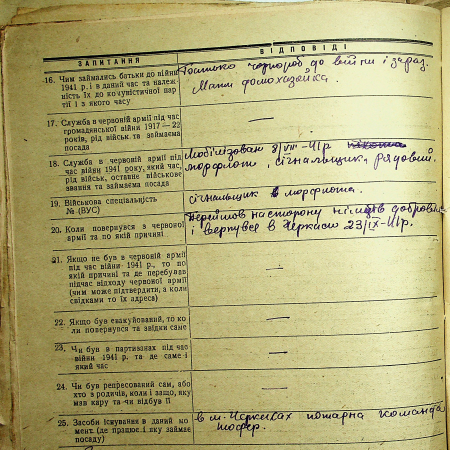 ЗАПИТАННЯ
ВІДПОВІДІ
16. Чим займались батьки до війни
1941 р. і в даний час та належ-
ність їх до комуністичної пар-
тії і з якого часу
Батько чорнороб до війни і зараз.
Мати домохазяйка.
17. Служба в червоній армії під час
громадянської війни 1917—22
років, рід військ та займаєма
посада
—
18. Служба в червоній армії під
час війни 1941 року, який час,
рід військ, останнє військове
звання та займаєма посада
Мобілізован 8/VII-41р
морфлот, сігнальщик, рядовий.
19. Військова спеціальність
№ (ВУС)
сігнальщик в морфлоте.
20. Коли повернувся з червоної
армії та по якій причині
Перейшов на сторону німців добров
і вертувся в Черкаси 23/IX-41р.
21. Якщо не був в червоній армії
під час війни 1941 р., то по
якій причині та де перебував
підчас відходу червоної армії
(чим може підтвердити, а коли
свідками то їх адреса)
—
22. Якщо був евакуйований, то ко-
ли повернувся та звідки саме
—
23. Чи був в партизанах під час
війни 1941 р. та де саме і
який час
—
24. Чи був репресований сам, або
хто з родичів, коли і защо, яку
мав кару та чи відбув її
—
25. Засоби існування в даний мо-
мент. (де працює і яку займає
посаду)
в м. Черкасах пожарна команда
шофер.